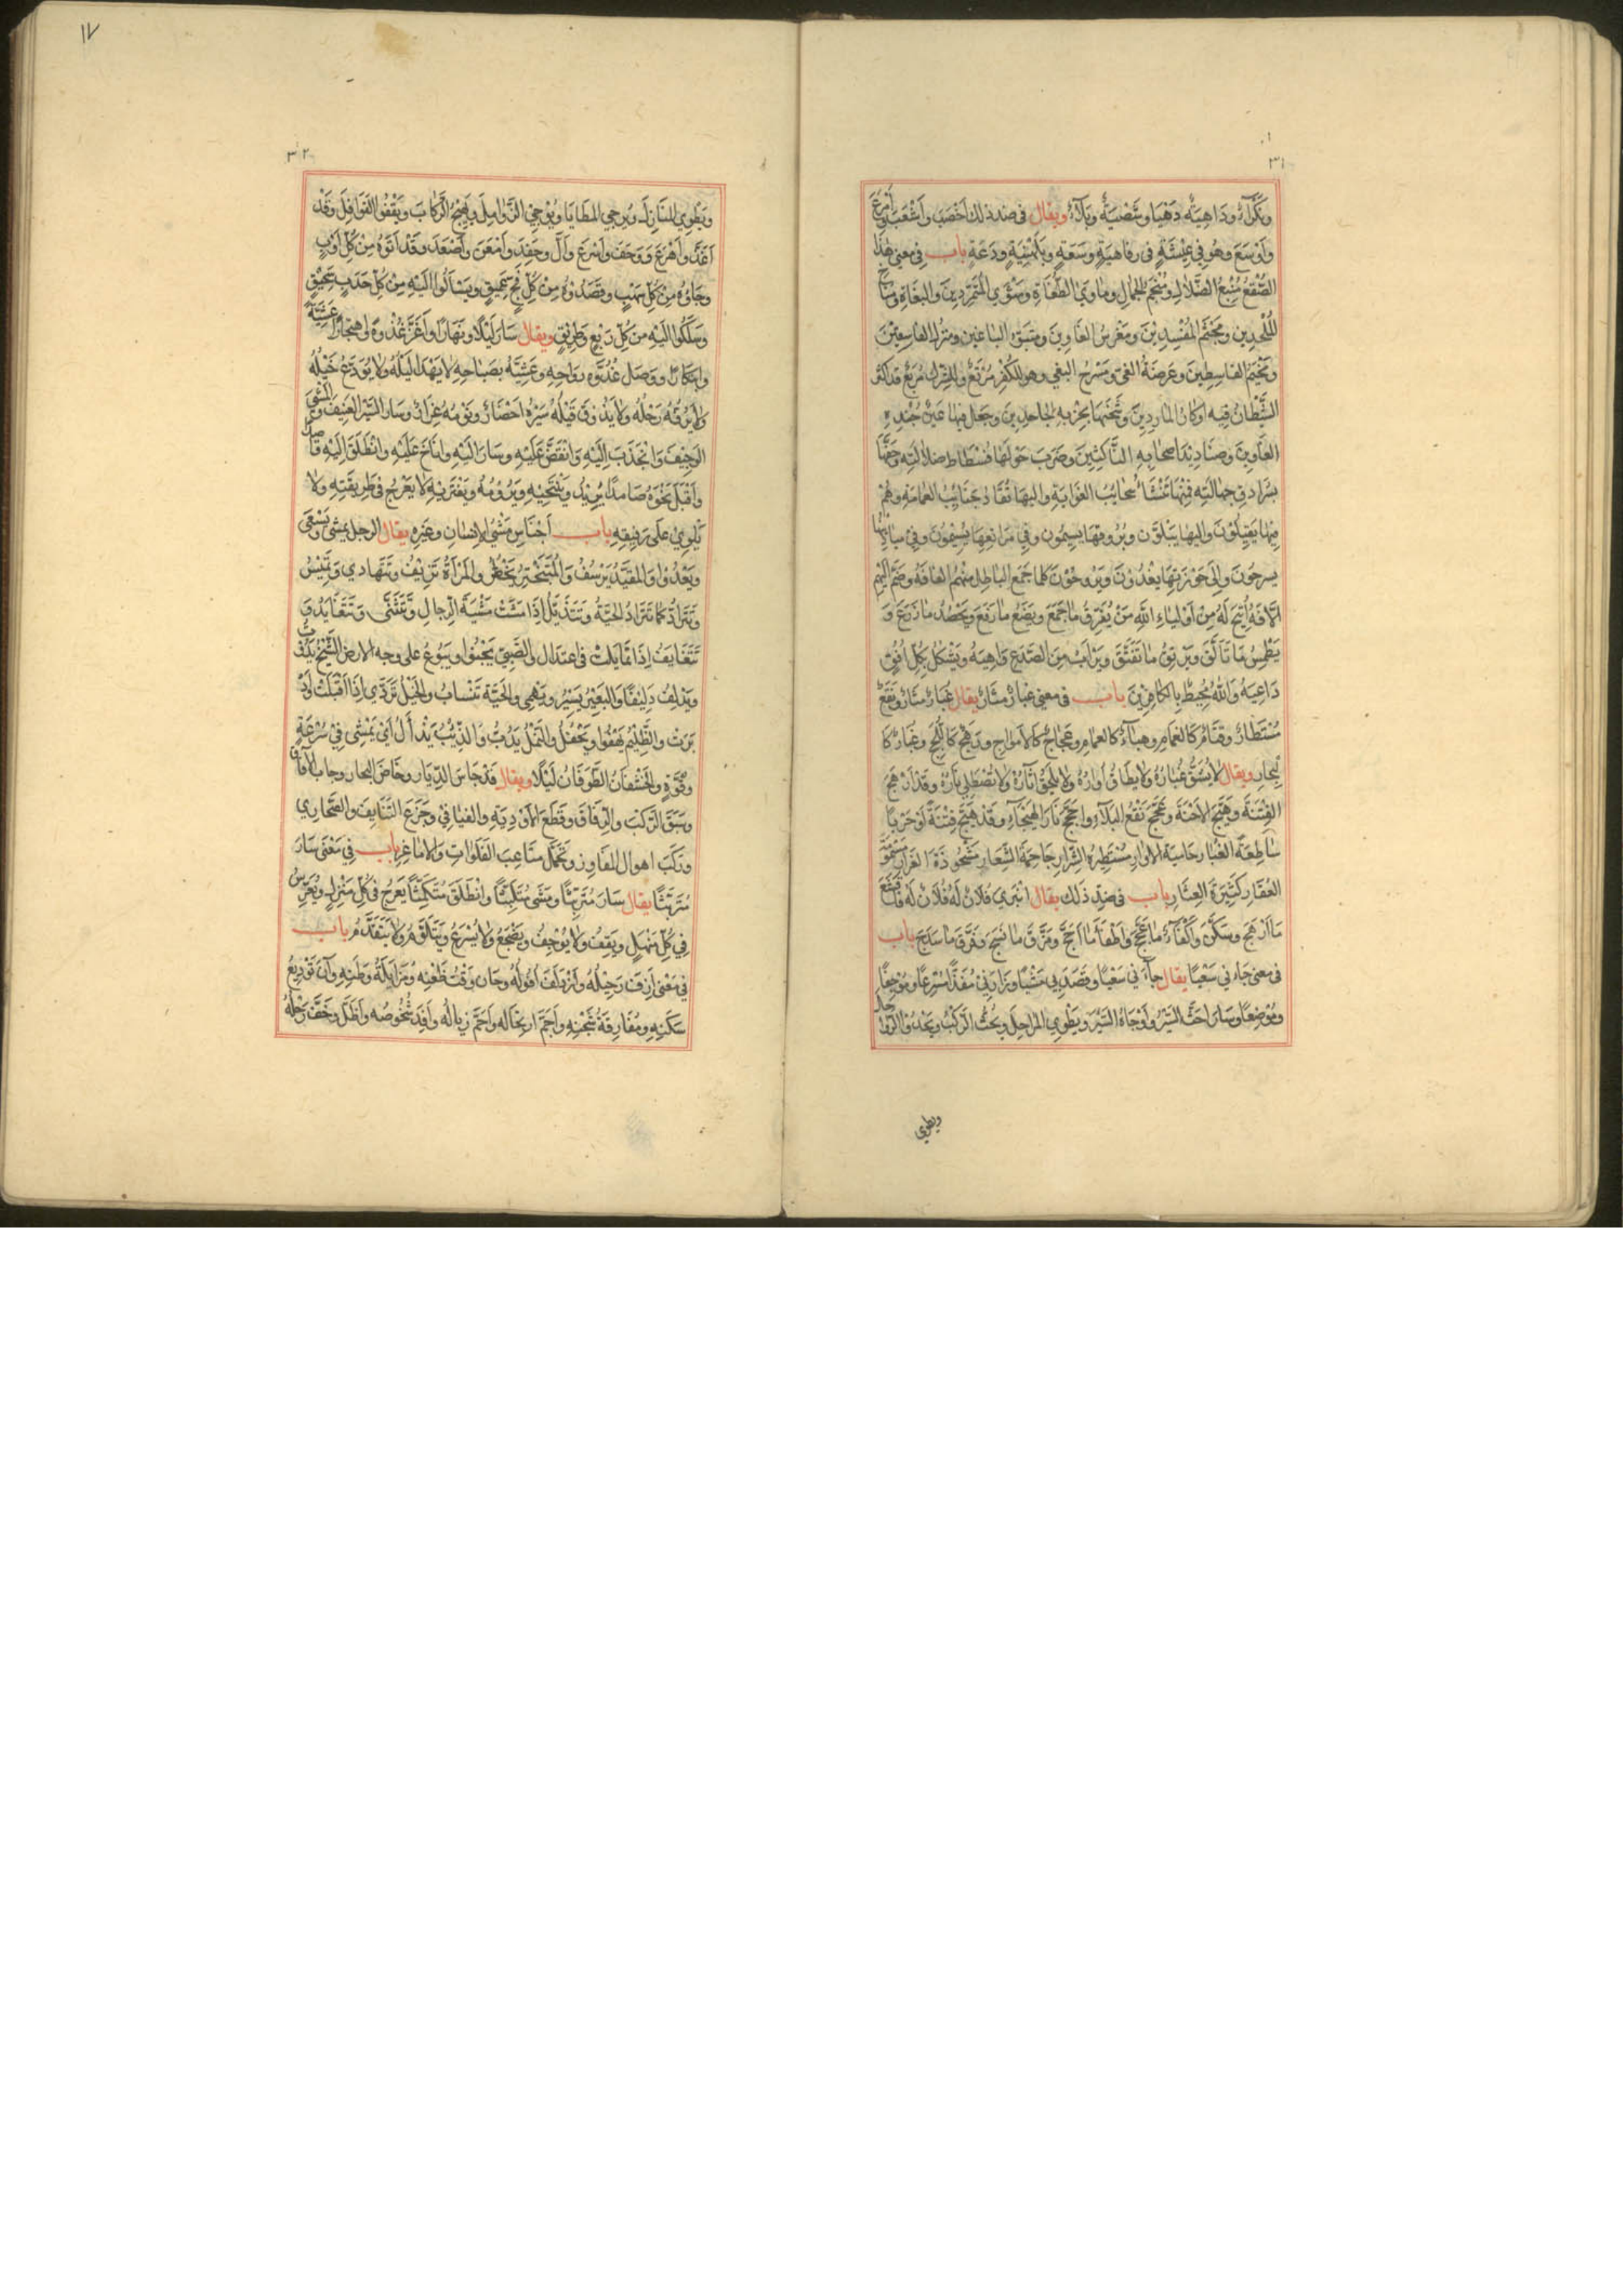 ٣١
ونكرآء ودَاهِيَةٌ دَهْيَا وشَصِيبَةٌ وبَلآءٌ ويقال فى ضد ذلك اَخْصَبَ وَاَعْشَبَ وَاَمْرَعَ
وَاَوْسَعَ وهُوَ فِي عِيْشَةٍ فى رفاهيَةٍ وسَعَةٍ وبُلَهْنِيَةٍ ودَعَةٍ باب فى معنى هٰذَا
الصُّقْعُ مَنْبَعُ الضَّلَالِ وَمَنْجَمُ الجهال وماوى الطُّغَاةِ ومَثْوَى المُتَمَرِّدِينَ والبغَاةِ ومناخ
المُلْحِدِين ومَجْثَم المُفْسِدِيْنَ ومَغْرسُ الغَاوِينَ ومتبَوَّء الباغين ومنزل الفاسِقِيْنَ
ومُخَيَّم القاسِطِينَ وعَرصَةُ الغىّ ومَسْرَحُ البغي وهو للكُفْرِ مُرْتَعٌ وللشِرْكِ مَرْبَعٌ قد اتخذ
الشَّيْطَانُ فيه اوكارُ المَارِدِينَ وشَحَنَهَا بِحِزْبِهِ الجاحِدِينَ وجَعَل فيها عَيْنَ جُنْدِهِ
الغَاوِينَ وصَنَادِيْدَ اصحابِهِ النَّاكِثِينَ وضَرَبَ حَوْلَهَا فُسْطَاط ضلالته وحَفَّهَا
بسُرَادِقِ جهالتِهِ فَمِنْهَا تَنْشَأُ سَحَايبُ الغَوَايَةِ واليها تُقَادُ جَنَايِبُ العمايةِ وهُمْ
فِيْهَا يَقِيْلُوْنَ وَاليها يَمِيْلُون وبُرُوقَهَا يشِيمُون وفِي مَرَاتِعِهَا يُسِيْمُونَ وفِي مباءتها
يسرحَونَ وَاِلَى حَوْزَتِهَا يَغْدُوْنَ ويَرُوحُوْنَ كلما جَمَع الباطل منهم الفافَه وضَمَّ اليْهِمْ
اُلّافَهُ اُتِيْحَ لَهُ مِنْ اَوْلِيَاءِ اللهِ مَنْ يُفَرِّقُ مَا جَمَعَ ويَضَعُ ما رَفَعَ ويَحْصُدُ مَا زَرَعَ وَ
يَطْمِسُ مَا تَأَلَّقَ ويَرْتِقُ مَا تَفَتَّقَ ويَرْأَبُ مِنَ الصَّدْعِ وَاهِيَهُ ويَشْكُلُ بِكُلِّ اُفُقٍ
دَاعِيَهُ وَاللهُ مُحِيْطٌ بِالكَافِرِيْنَ باب فى معنى غبارٌ مثَارٌ يقال غُبَارٌ مثارٌ ونَقْعٌ
مُسْتَطَارٌ وقَتَامٌ كَالغمامِ وهباءٌ كالعمامِ وعَجَاجٌ كَالاَمْوَاجِ ورَهَجٌ كَاللُّجَجِ وغبَارٌ كا
لبحارِ ويقال لا يُشَقُّ غُبَارُهُ ولا يطَاقُ اُوَارُهُ ولا يُلْحَقُ اثَارُهُ ولا تُصْطَلى نَارُهُ وقَدْ اَرْهَجَ
الفِتْنَةَ وهَيَّجَ الاِحْنَةَ وعَجَّجَ نَقْعَ البَلآءِ وَاجَّجَ نَارَ الهَيْجَآءِ وقَدْ هَيَّجَ فِتْنَةً اَوْ حَرْبًا
سَاطِعَةَ الغُبَارِ حَامِيَةَ الاُوَارِ مُسْتَطِيرَةَ الشَّرَارِ جَاحِمَةَ الشِّعَارِ مَشْحُوذَةَ الغَرَارِ مَسْمُوْمَةَ
العُقَارِ كَثِيْرَةَ العِثَارِ باب فى ضِدِّ ذَلكَ يقال انْبَرَى فُلَانٌ لَهُ فُلَانٌ لَهُ فَقَشَعَ
مَا اَرْهَجَ وسَكَّنَ وَاَكْفَاءَ مَا عَجَّجَ وَاَطْفَأَ مَا اَجَّجَ ومَزَّقَ مَا نَسَجَ وَفَرَّقَ مَا سَدَجَ باب
فى معنى جَاءَنِي سَعْيًا يقال جآءَنى سَعْيًا وقَصَدَنِي مَشْيًا وزَارَنِيْ مُغِذًّا مُسْرِعًا ومُوْجِفًا
ومُوْضِعًا وسَارَ اَحَثَّ السَّيْرِ وَاَوْحَاهُ السَّيْرَ ويَطْوِي المراحِلَ ويَحُثُّ الرَّكْبَ ويَحْدُو الرَّوَاحِلَ
ويطوي
١٧
٣٢
ويَطْوِي المنَازِلَ ويُزجي المطَايَا ويُوْجِفِ الزَّوَامِلَ ويُهِيْجُ الرِّكَابَ ويَقْفُوا القَوَافِلَ وَقَدْ
اَغَذَّ وَاَهْرَعَ وَوَجَفَ وَاَسْرَعَ وَاَلَّ وحَفِدَ وَامْعَنَ وَاَصْعَدَ وقَدْ اَتَوْهُ مِنْ كُلِّ اَوْبٍ
وجَاؤُهُ مِنْ كُلِّ سَهْبٍ وقَصَدُوهُ مِنْ كُلِّ فَجٍّ عَمِيْقٍ ونَسَلُوا الَيْهِ مِنْ كُلِّ حَدَبٍ سَحِيْقٍ
وسَلَكُوا الَيْهِ من كُلِّ رَيْعٍ وَطَرِيْقٍ ويقال سَارَ لَيْلًا ونَهَارًا وَاَغَذَّ غُدْوَةً وهِجَارًا عَشِيَّةً
وابتكَارًا ووَصَل غُدُوَّه برَوَاحِهِ وعَشِيَّهُ بصَبَاحِهِ لا يَهْدَا لَيْلُهُ ولا يُوَدَّعُ خَيْلُهُ
ولا يُرَفَّهُ رَحْلُهُ ولا يَذُوْقَ قَيْلَهُ سَيْرُهُ احضارٌ ونَوْمُهُ غِرَارٌ وسار السَّيْرَ العَنِيْفَ وَمَشَى المشْىَ
الوَجِيْفَ وَانْجَذَبَ اِلَيْهِ وَانْقَضَّ عَلَيْهِ وسَارَ الَيْهِ وانَاخَ عَلَيْهِ وانْطَلَقَ اِلَيْهِ قَاصِدًا
وَاَقْبَلَ نَحْوَهُ صَامِدًا يُرِيْدُ ويَنْتَحِيْهِ ويَرُوْمُهُ ويَعْتَرِيْهِ لا يَعْرُجُ فى طَرِيقَتِهِ ولا
يَلْوِيْ عَلَى رَفِيقِهِ باب اَجْنَاسِ مَشْىِ الاِنْسَانِ وغَيْرِهِ يقال الرجل يمشى ويَسْعَى
ويَعْدُوْا وَالمقَيَّدُ يَرْسُفُ وَالمُتَبَخْتِرُ يَخْطُرُ والمَرْاَةُ تَزِيْفُ وتَتَهَادى وَتَمِيْسُ
وتَتَرَادُّ كما تَتَرَادُّ الحَيَّةُ وتَتَذَيَّلُ اِذَا مَشَتْ مَشْيَةَ الرِّجالِ وَتَتَثَنَّى وتَتَغَايَدُ وَ
تَتَغَايَفُ اِذَا تمَايَلَتْ فى اعتِدَال والصَّبِيّ يَحْبُوْا ويَبُوْعُ على وجه الارض الشَّيْخُ يَدِبُّ
ويَدْلِفُ دَلِيْفًا وَالبَعْيْرُ يَسِيْرُ ويَهْمِى والحَيَّة تَنْسَابُ والخَيْلُ تَرْدِي اِذَا اقْبَلَتْ اَوْ اَدْ
بَرَتْ والظَّلِيْمُ يَهْفُوا ويَجْفُلُ والنَّمْلُ يَدُبُّ وَالذِّئْبُ يَذْأَلُ اَىْ يَمْشِى فِي سُرْعَةٍ
وقُوَّةٍ والخَشَفَانُ الطَّوَفَانُ لَيْلًا ويقال قَدْ جَاسَ الدِّيَارِ وخَاضَ البحار وجاب الآفاق
وسَبَقَ الرَّكْبَ والرِّفَاقَ وقَطَعَ الأوْدِيَة والفيَافِي وجَزَعَ التَّنَايِفَ والصَّحَارِي
ورَكَبَ اهوال المفَاوِزِ وتَحَمَّلَ متَاعِبَ الفَلَوَاتِ والاماعِزِ باب فِي مَعْنَى سَارَ
مُتَرَيِّثًا يقال سَارَ مُتَرَيِّثًا ومَشَى مُتَلَبِّثًا وانْطَلَقَ مُتَمَكِّثًا يَعْرُجُ فى كُلِّ مَنْزِلٍ ويُعَرِّسُ
فِي كُلِّ مَنْهَلٍ ويَقِفُ ولا يُوْجِفُ ويَضْجَعُ ولا يُسْرِعُ ويَتَلَوَّمُ ولا يَتَقَدَّمُ باب
فِي مَعْنَى اَزِفَ رَحِيْلُهُ وَازْدَلَفَ اُفُولُهُ وحَان وَقْتُ ظَعْنِهِ ومُزَايَلَةُ وَطَنِهِ وآنَ تَوْدِيْعُ
سَكَنِهِ ومُفَارِقَةُ شَجْنِهِ واَجَمَّ ارتحَالُه واَحَمَّ زِيالُه واَفِدَ شُخُوصُه واَظَلَّ وخَفَّ رَحْلُهُ